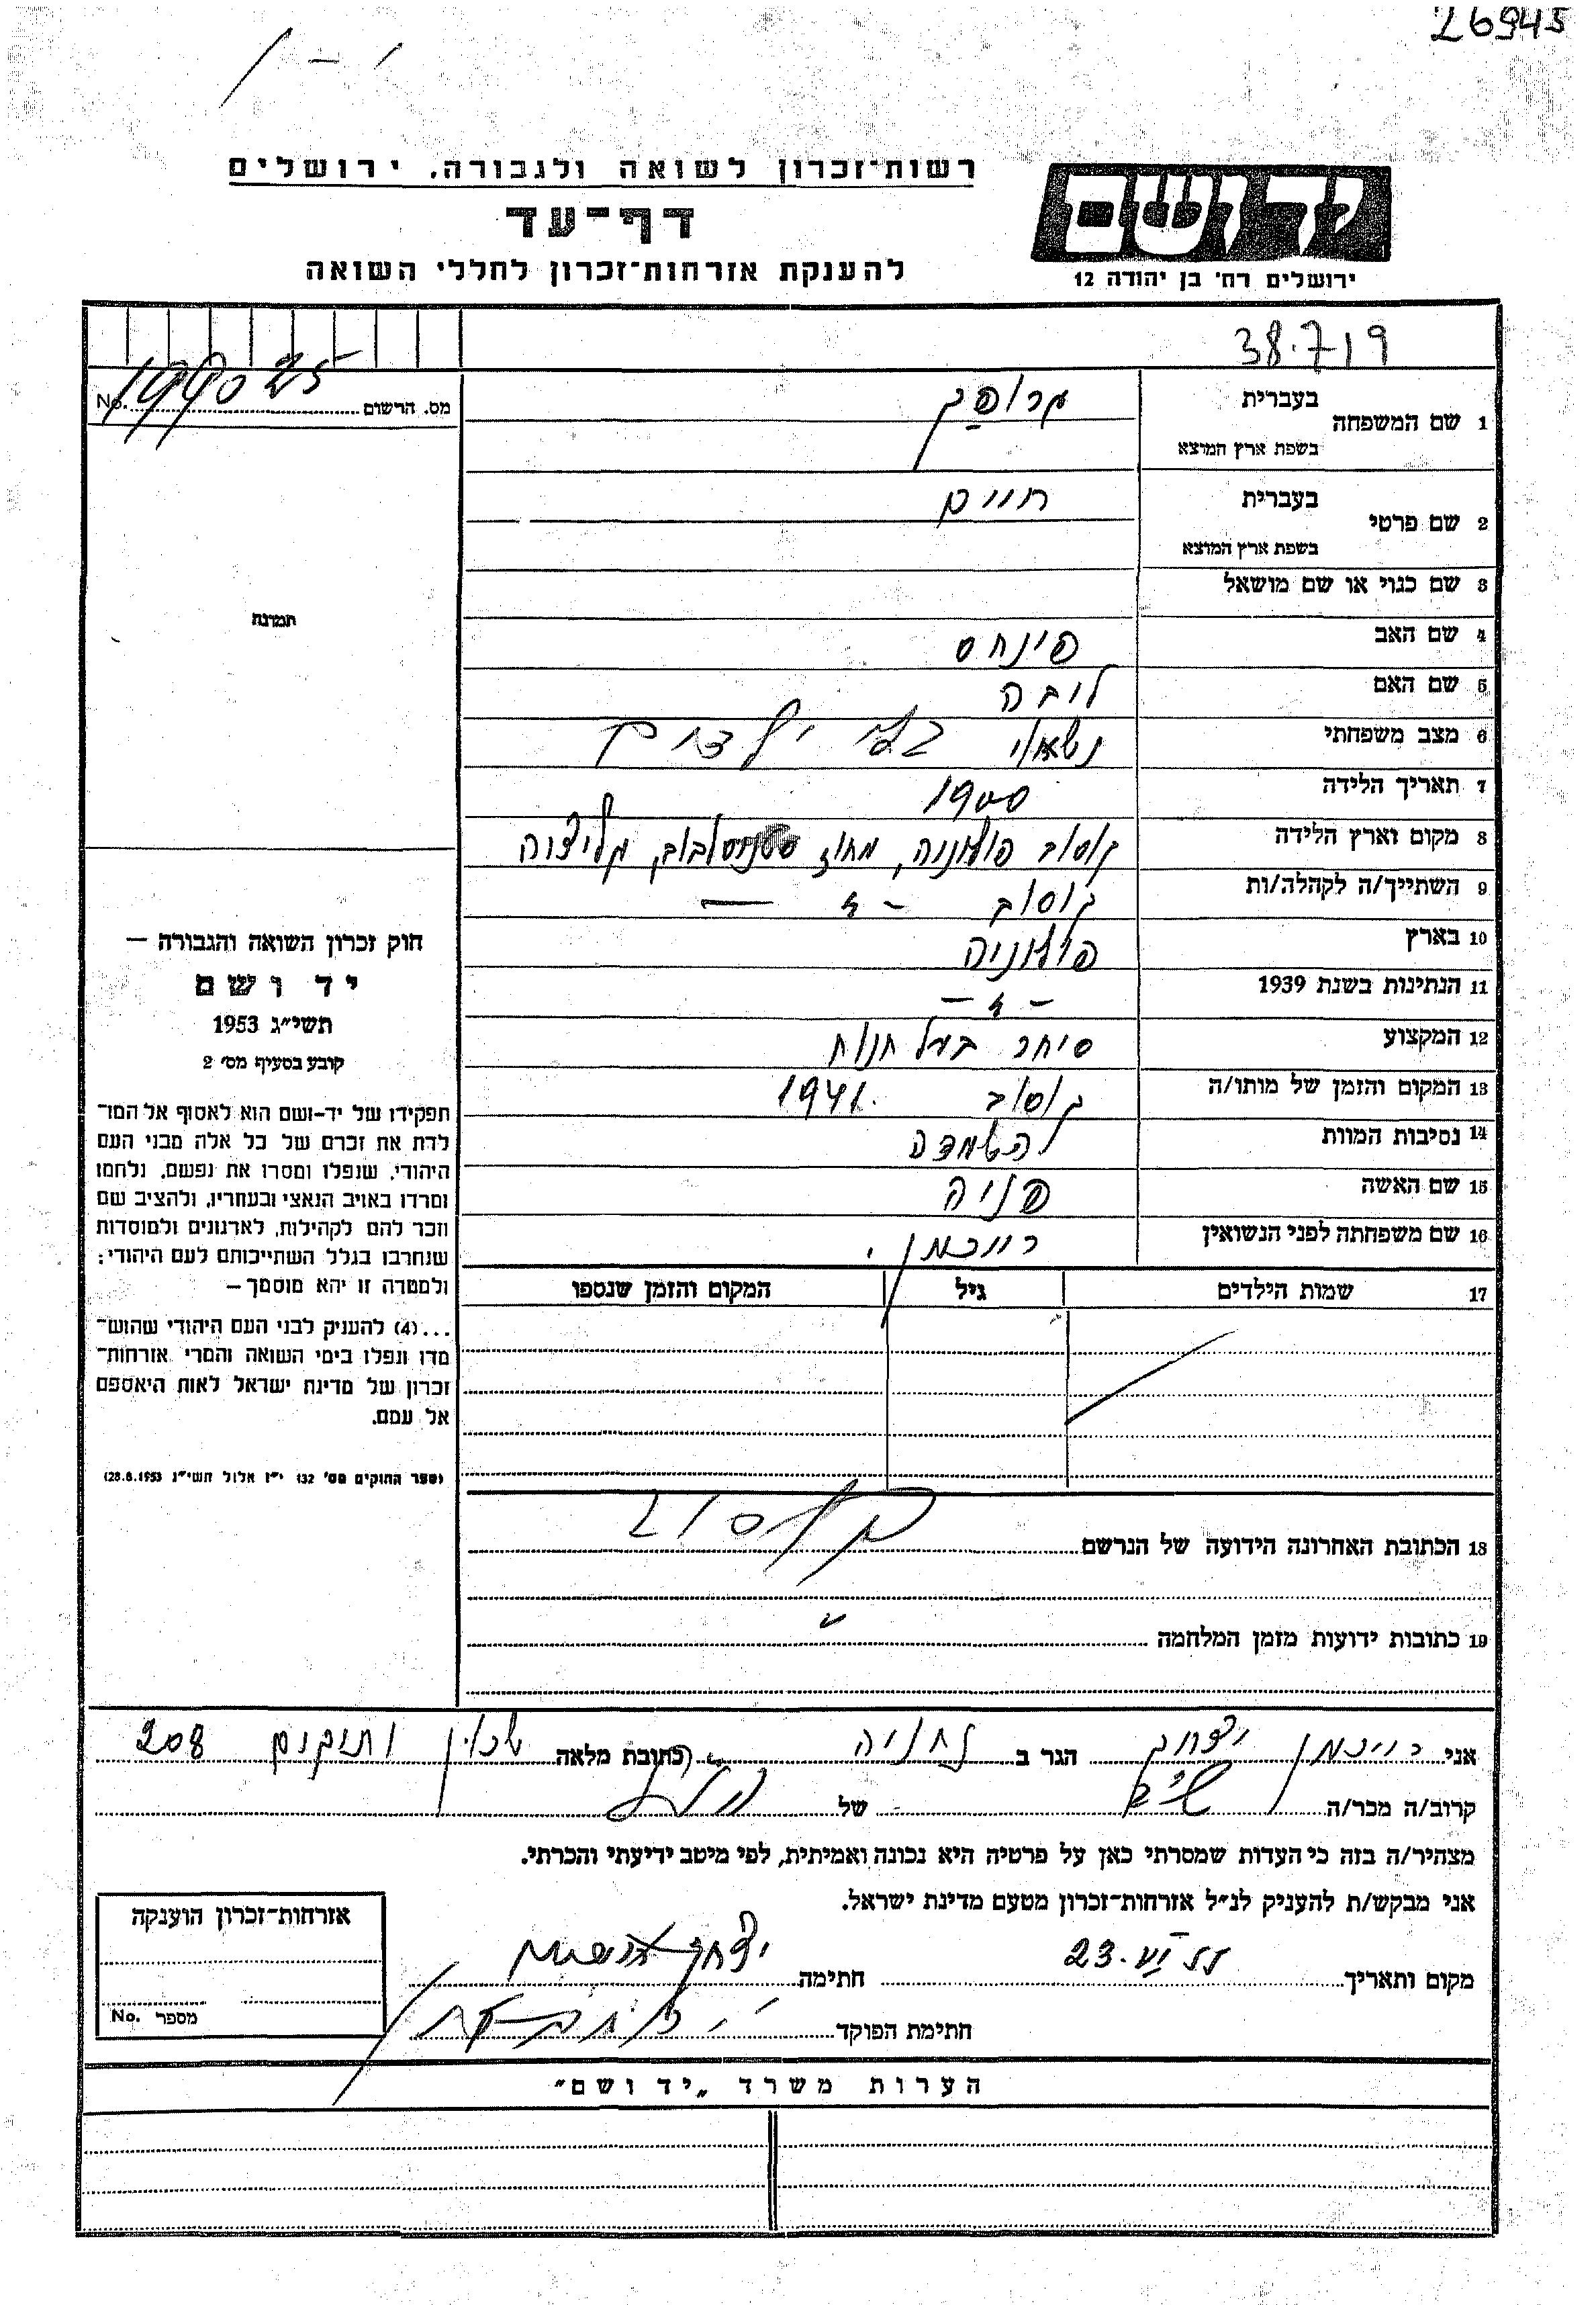 26945
רשות־זכרון לשואה ולגבורה, ירושלים
דף־עד
להענקת אזרחות־זכרון לחללי השואה
יד ושם
ירושלים רח' בן יהודה 12
38.719
מס. הרשום No. 199025
1 שם המשפחה בעברית
בשפת ארץ המוצא
2 שם פרטי בעברית חיים
בשפת ארץ המוצא
3 שם כנוי או שם מושאל
4 שם האב פינחס
5 שם האם לובה
6 מצב משפחתי נשאוי בלי ילדים
7 תאריך הלידה 1900
8 מקום וארץ הלידה קוסוב פולוניה, מחוז גליציה
9 השתייך/ה לקהלה/ות קוסוב – " –
10 בארץ פולוניה
11 הנתינות בשנת 1939 – " –
12 המקצוע סוחר בעל חנות
13 המקום והזמן של מותו/ה קוסוב 1941.
14 נסיבות המוות השמדה
15 שם האשה פניה
16 שם משפחתה לפני הנשואין רייכמן.
17 שמות הילדים גיל המקום והזמן שנספו
18 הכתובת האחרונה הידועה של הנרשם קוסוב
19 כתובות ידועות מזמן המלחמה "
תמונה
חוק זכרון השואה והגבורה —
יד ושם
תשי״ג 1953
קובע בסעיף מס' 2
תפקידו של יד-ושם הוא לאסוף אל המו־
לדת את זכרם של כל אלה מבני העם
היהודי, שנפלו ומסרו את נפשם, נלחמו
ומרדו באויב הנאצי ובעוזריו, ולהציב שם
וזכר להם לקהילות, לארגונים ולמוסדות
שנחרבו בגלל השתייכותם לעם היהודי;
ולמטרה זו יהא מוסמך —
...(4) להעניק לבני העם היהודי שהוש־
מדו ונפלו בימי השואה והמרי אזרחות־
זכרון של מדינת ישראל לאות היאספם
אל עמם.
(ספר החוקים מס' 132 י״ז אלול תשי״ג 28.8.1953)
אני רייכמן יצחק הגר ב נתניה כתובת מלאה שכון ותיקים 208
קרוב/ה מכר/ה של
מצהיר/ה בזה כי העדות שמסרתי כאן על פרטיה היא נכונה ואמיתית, לפי מיטב ידיעתי והכרתי.
אני מבקש/ת להעניק לנ״ל אזרחות־זכרון מטעם מדינת ישראל.
מקום ותאריך 23.VI.55 חתימה יצחק
חתימת הפוקד
אזרחות־זכרון הוענקה
מספר No.
הערות משרד „יד ושם״